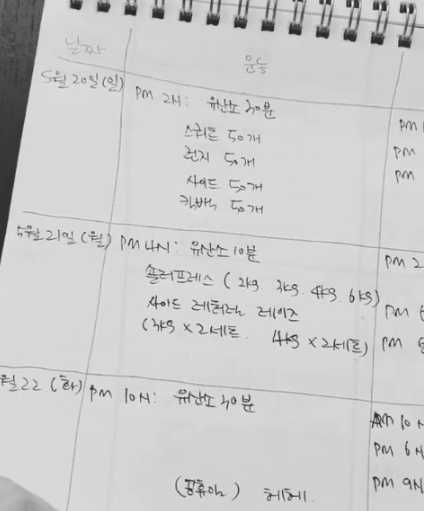 날짜 운동
5월 20일(일) PM 2시: 유산소 30분 PM
스쿼트 50개 PM
런지 50개 PM
사이드 50개
킥백 50개
5월 21일(월) PM 4시: 유산소 10분 PM 2
숄더프레스 (2kg 3kg. 4kg 6kg)
사이드 레터럴 레이즈 PM
(3kg × 2세트. 4kg × 2세트) PM
월 22 (화) PM 10시: 유산소 30분 AM 10시
PM 6시
(공휴일) 헤헤. PM 9시